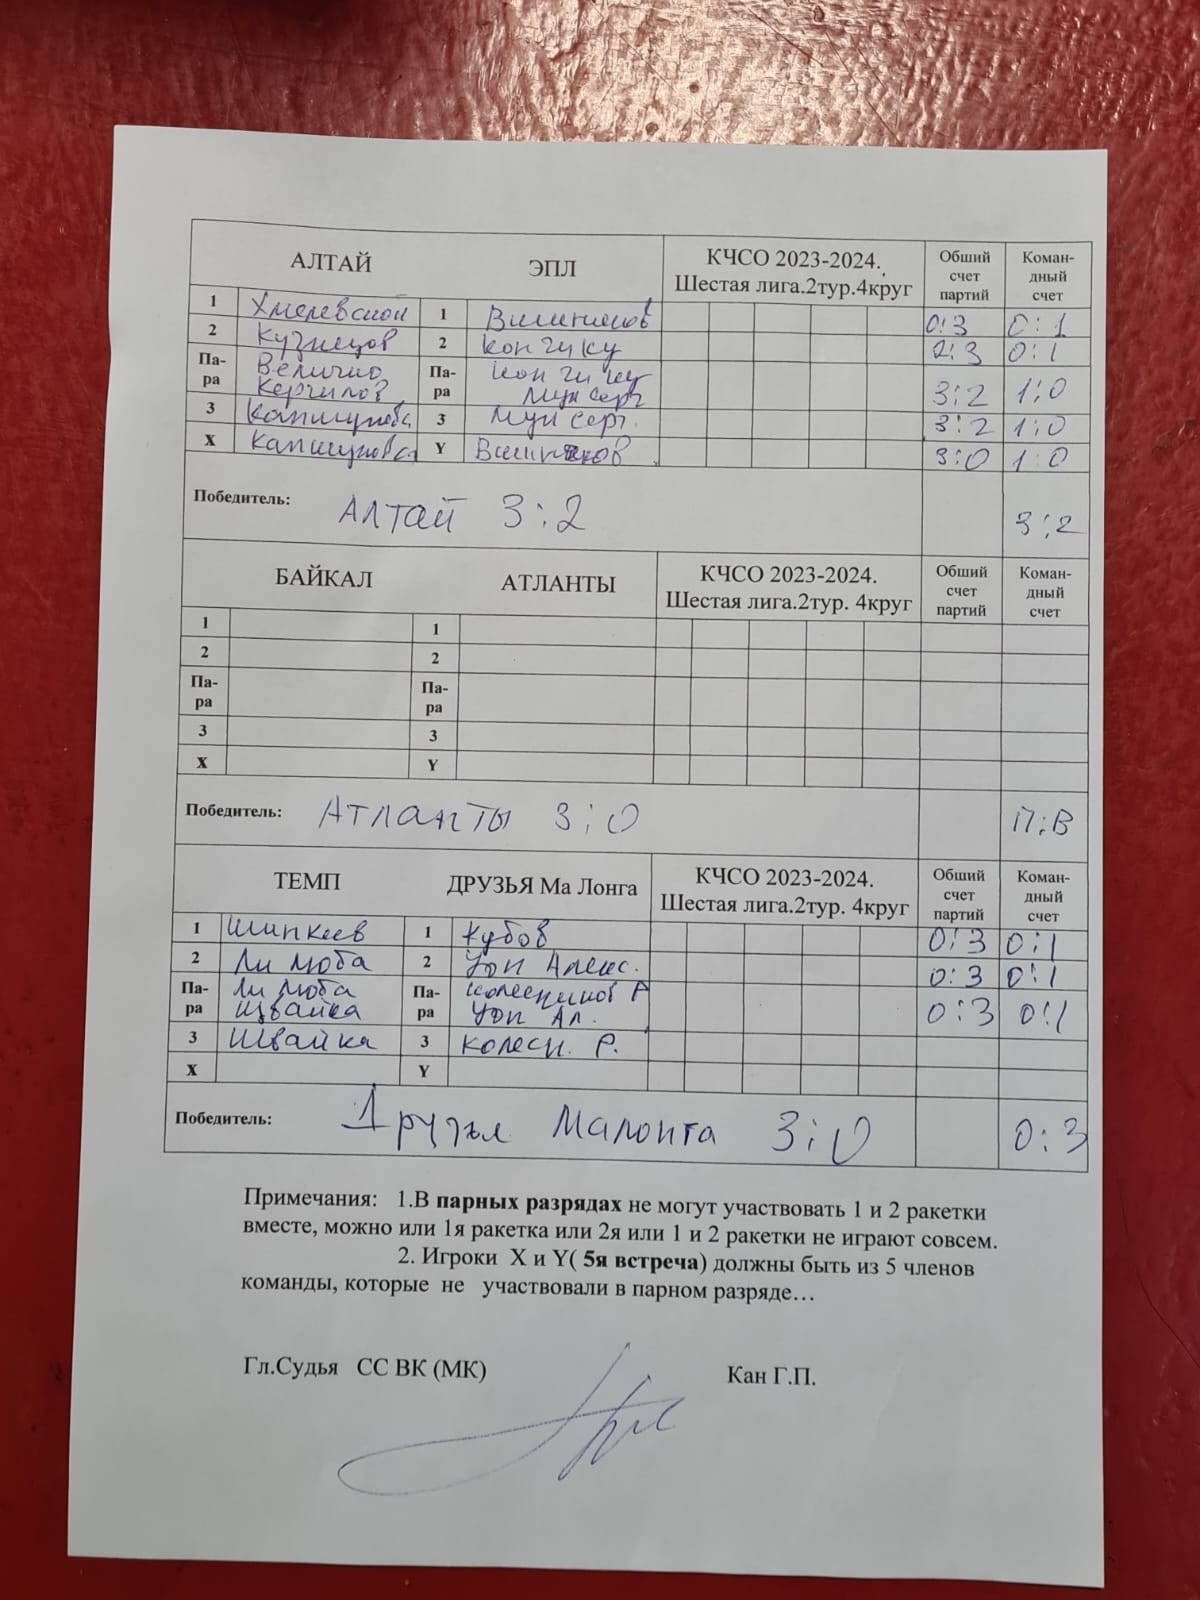 АЛТАЙ ЭПЛ КЧСО 2023-2024. Обший Коман-
Шестая лига.2тур.4круг счет дный
партий счет
1 Хмелевской 1 Вишняков 0:3 0:1
2 Кузнецов 2 Кон 2:3 0:1
Па- Величко Па- Кон
ра ра Мун серг 3:2 1:0
3 3 Мун серг. 3:2 1:0
X Y Вишняков 3:0 1:0
Победитель: Алтай 3:2 3:2
БАЙКАЛ АТЛАНТЫ КЧСО 2023-2024. Обший Коман-
Шестая лига.2тур. 4круг счет дный
партий счет
1 1
2 2
Па- Па-
ра ра
3 3
X Y
Победитель: Атланты 3:0 П:В
ТЕМП ДРУЗЬЯ Ма Лонга КЧСО 2023-2024. Обший Коман-
Шестая лига.2тур. 4круг счет дный
партий счет
1 Шипкеев 1 Кубов 0:3 0:1
2 Ли Люба 2 Алекс. 0:3 0:1
Па- Ли Люба Па- Колесников Р
ра Швайка ра Ал. 0:3 0:1
3 Швайка 3 Колесн. Р.
X Y
Победитель: Друзья Малонга 3:0 0:3
Примечания: 1.В парных разрядах не могут участвовать 1 и 2 ракетки
вместе, можно или 1я ракетка или 2я или 1 и 2 ракетки не играют совсем.
2. Игроки X и Y( 5я встреча) должны быть из 5 членов
команды, которые не участвовали в парном разряде…
Гл.Судья СС ВК (МК) Кан Г.П.